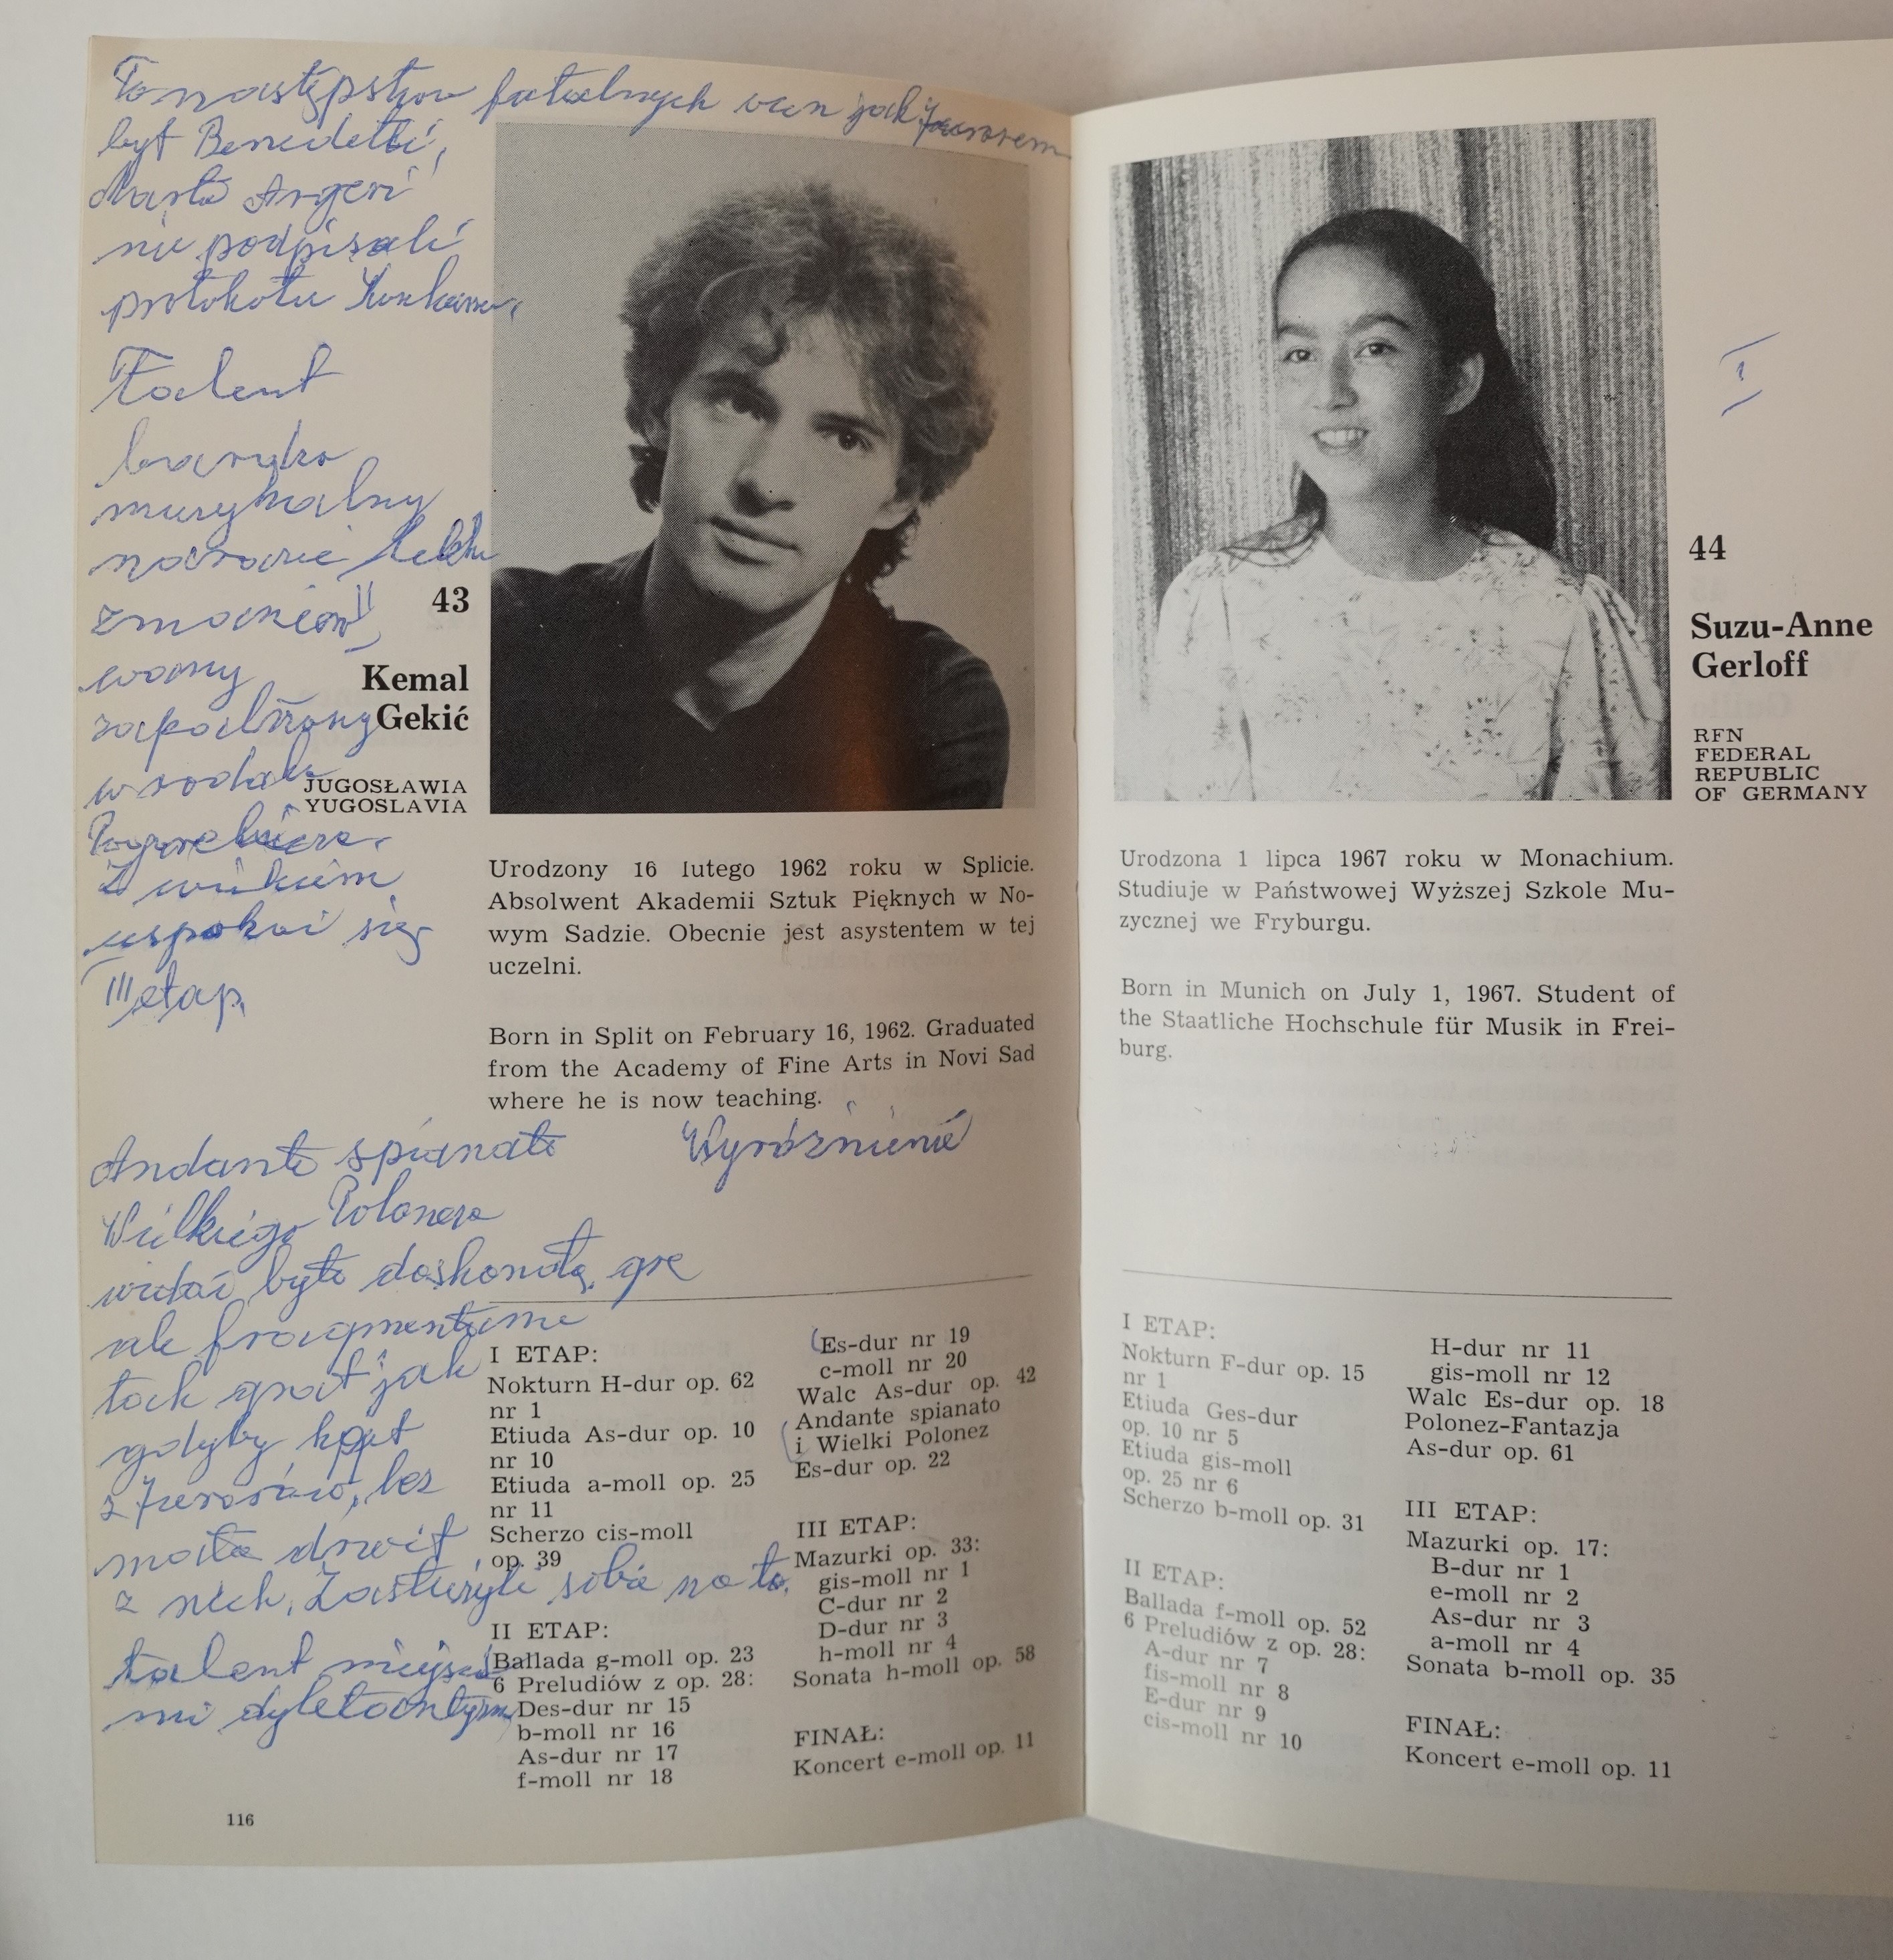 To następstw fatalnych ocen jak
był Benedetti,
Marta Argeri
nie podpisali
protokołu Konkursu,
Talent
bardzo
muzykalny
na razie lekko
zmanierow
wany
zapatrzony
w rodaka
Pogorelicza.
Z wiekiem
uspokoi się
III etap.
43
Kemal
Gekić
JUGOSŁAWIA
YUGOSLAVIA
Urodzony 16 lutego 1962 roku w Splicie.
Absolwent Akademii Sztuk Pięknych w No-
wym Sadzie. Obecnie jest asystentem w tej
uczelni.
Born in Split on February 16, 1962. Graduated
from the Academy of Fine Arts in Novi Sad
where he is now teaching.
Wyróżnienie
Andante spianato
Wielkiego Poloneza
widać było doskonałą grę
ale fragmentami
tak grał jak
gdyby kpił
z Jurorów, bez
mała drwił
z nich, Zasłużyli sobie na to.
talent miejsca
mi dyletantyzm
I ETAP:
Nokturn H-dur op. 62
nr 1
Etiuda As-dur op. 10
nr 10
Etiuda a-moll op. 25
nr 11
Scherzo cis-moll
op. 39
II ETAP:
Ballada g-moll op. 23
6 Preludiów z op. 28:
Des-dur nr 15
b-moll nr 16
As-dur nr 17
f-moll nr 18
Es-dur nr 19
c-moll nr 20
Walc As-dur op. 42
Andante spianato
i Wielki Polonez
Es-dur op. 22
III ETAP:
Mazurki op. 33:
gis-moll nr 1
C-dur nr 2
D-dur nr 3
h-moll nr 4
Sonata h-moll op. 58
FINAŁ:
Koncert e-moll op. 11
116
I
44
Suzu-Anne
Gerloff
RFN
FEDERAL
REPUBLIC
OF GERMANY
Urodzona 1 lipca 1967 roku w Monachium.
Studiuje w Państwowej Wyższej Szkole Mu-
zycznej we Fryburgu.
Born in Munich on July 1, 1967. Student of
the Staatliche Hochschule für Musik in Frei-
burg.
I ETAP:
Nokturn F-dur op. 15
nr 1
Etiuda Ges-dur
op. 10 nr 5
Etiuda gis-moll
op. 25 nr 6
Scherzo b-moll op. 31
II ETAP:
Ballada f-moll op. 52
6 Preludiów z op. 28:
A-dur nr 7
fis-moll nr 8
E-dur nr 9
cis-moll nr 10
H-dur nr 11
gis-moll nr 12
Walc Es-dur op. 18
Polonez-Fantazja
As-dur op. 61
III ETAP:
Mazurki op. 17:
B-dur nr 1
e-moll nr 2
As-dur nr 3
a-moll nr 4
Sonata b-moll op. 35
FINAŁ:
Koncert e-moll op. 11